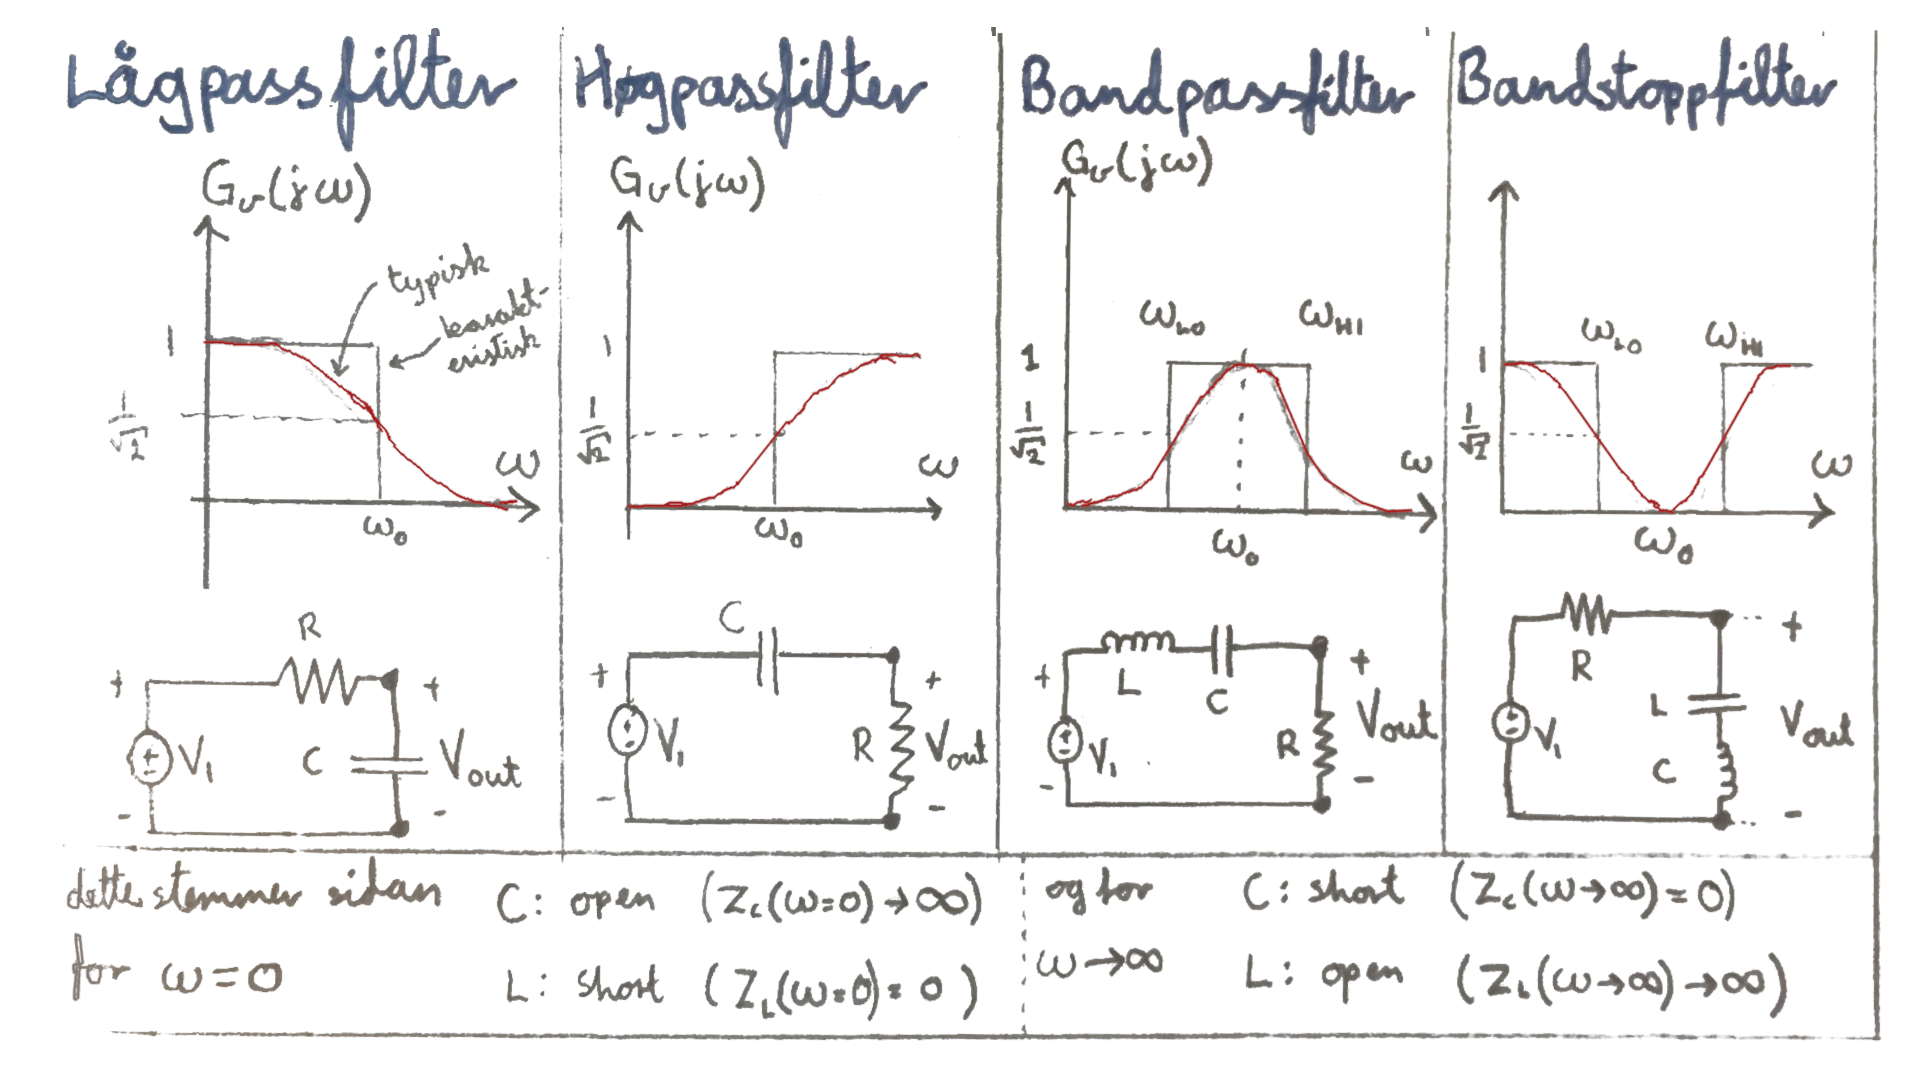 Lågpassfilter
G_v(jω)
typisk
karakt-
eristisk
1
1/√2
ω
ω₀
R
+ +
V₁ C V_out
- -
Høgpassfilter
G_v(jω)
1
1/√2
ω
ω₀
C
+ +
V₁ R V_out
- -
Bandpassfilter
G_v(jω)
ω_LO ω_HI
1
1/√2
ω
ω₀
+ L C +
V₁ R V_out
- -
Bandstoppfilter
ω_LO ω_HI
1
1/√2
ω
ω₀
R +
L
V₁ V_out
C
-
dette stemmer sidan C: open (Z_C(ω=0)→∞)
for ω=0 L: short (Z_L(ω=0)=0)
og for C: short (Z_C(ω→∞)=0)
ω→∞ L: open (Z_L(ω→∞)→∞)